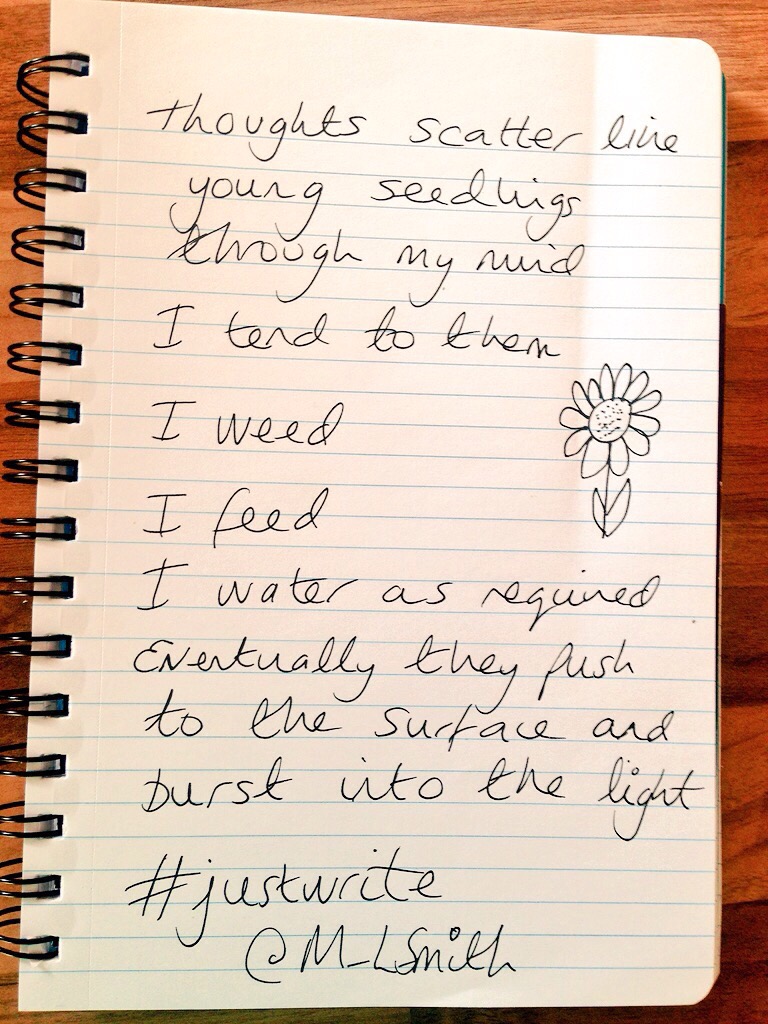 Thoughts scatter like
young seedlings
through my mind
I tend to them
I weed
I feed
I water as required
Eventually they push
to the surface and
burst into the light
#justwrite
@M_LSmith